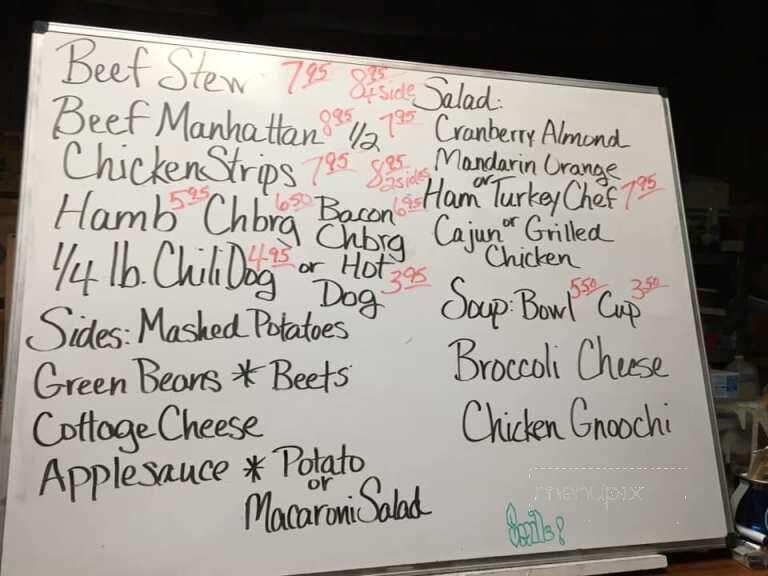 Beef Stew 7.95 8.95 + side
Beef Manhattan 8.95 1/2 7.95
Chicken Strips 7.95 8.95 2 sides
Hamb 5.95 Chbrg 6.50 Bacon 6.95
Chbrg
1/4 lb. Chili Dog 4.95 or Hot
Dog 3.95
Sides: Mashed Potatoes
Green Beans * Beets
Cottage Cheese
Applesauce * Potato
or
Macaroni Salad
Salad:
Cranberry Almond
Mandarin Orange
Ham or Turkey Chef 7.95
Cajun or Grilled
Chicken
Soup: Bowl 5.50 Cup 3.50
Broccoli Cheese
Chicken Gnoochi
menupix